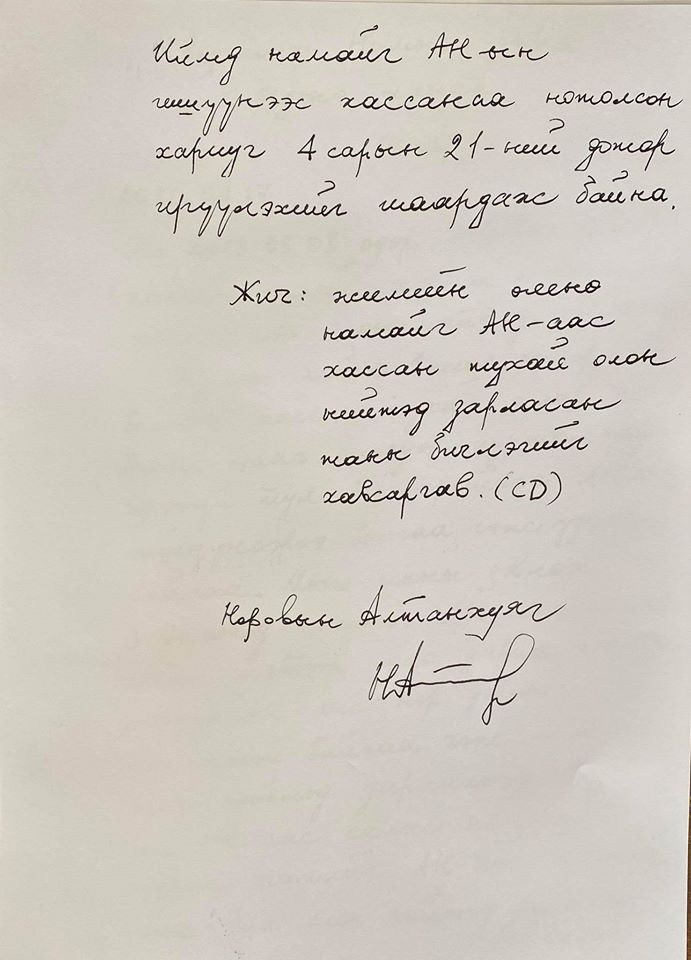 Иймд намайг АН-ын
гишүүнээс хассанаа нотолсон
хариуг 4 сарын 21-ний дотор
ирүүлэхийг шаардаж байна.
Жич: жилийн өмнө
намайг АН-аас
хассан тухай олон
нийтэд зарласан
таны бичлэгийг
хавсаргав. (CD)
Норовын Алтанхуяг